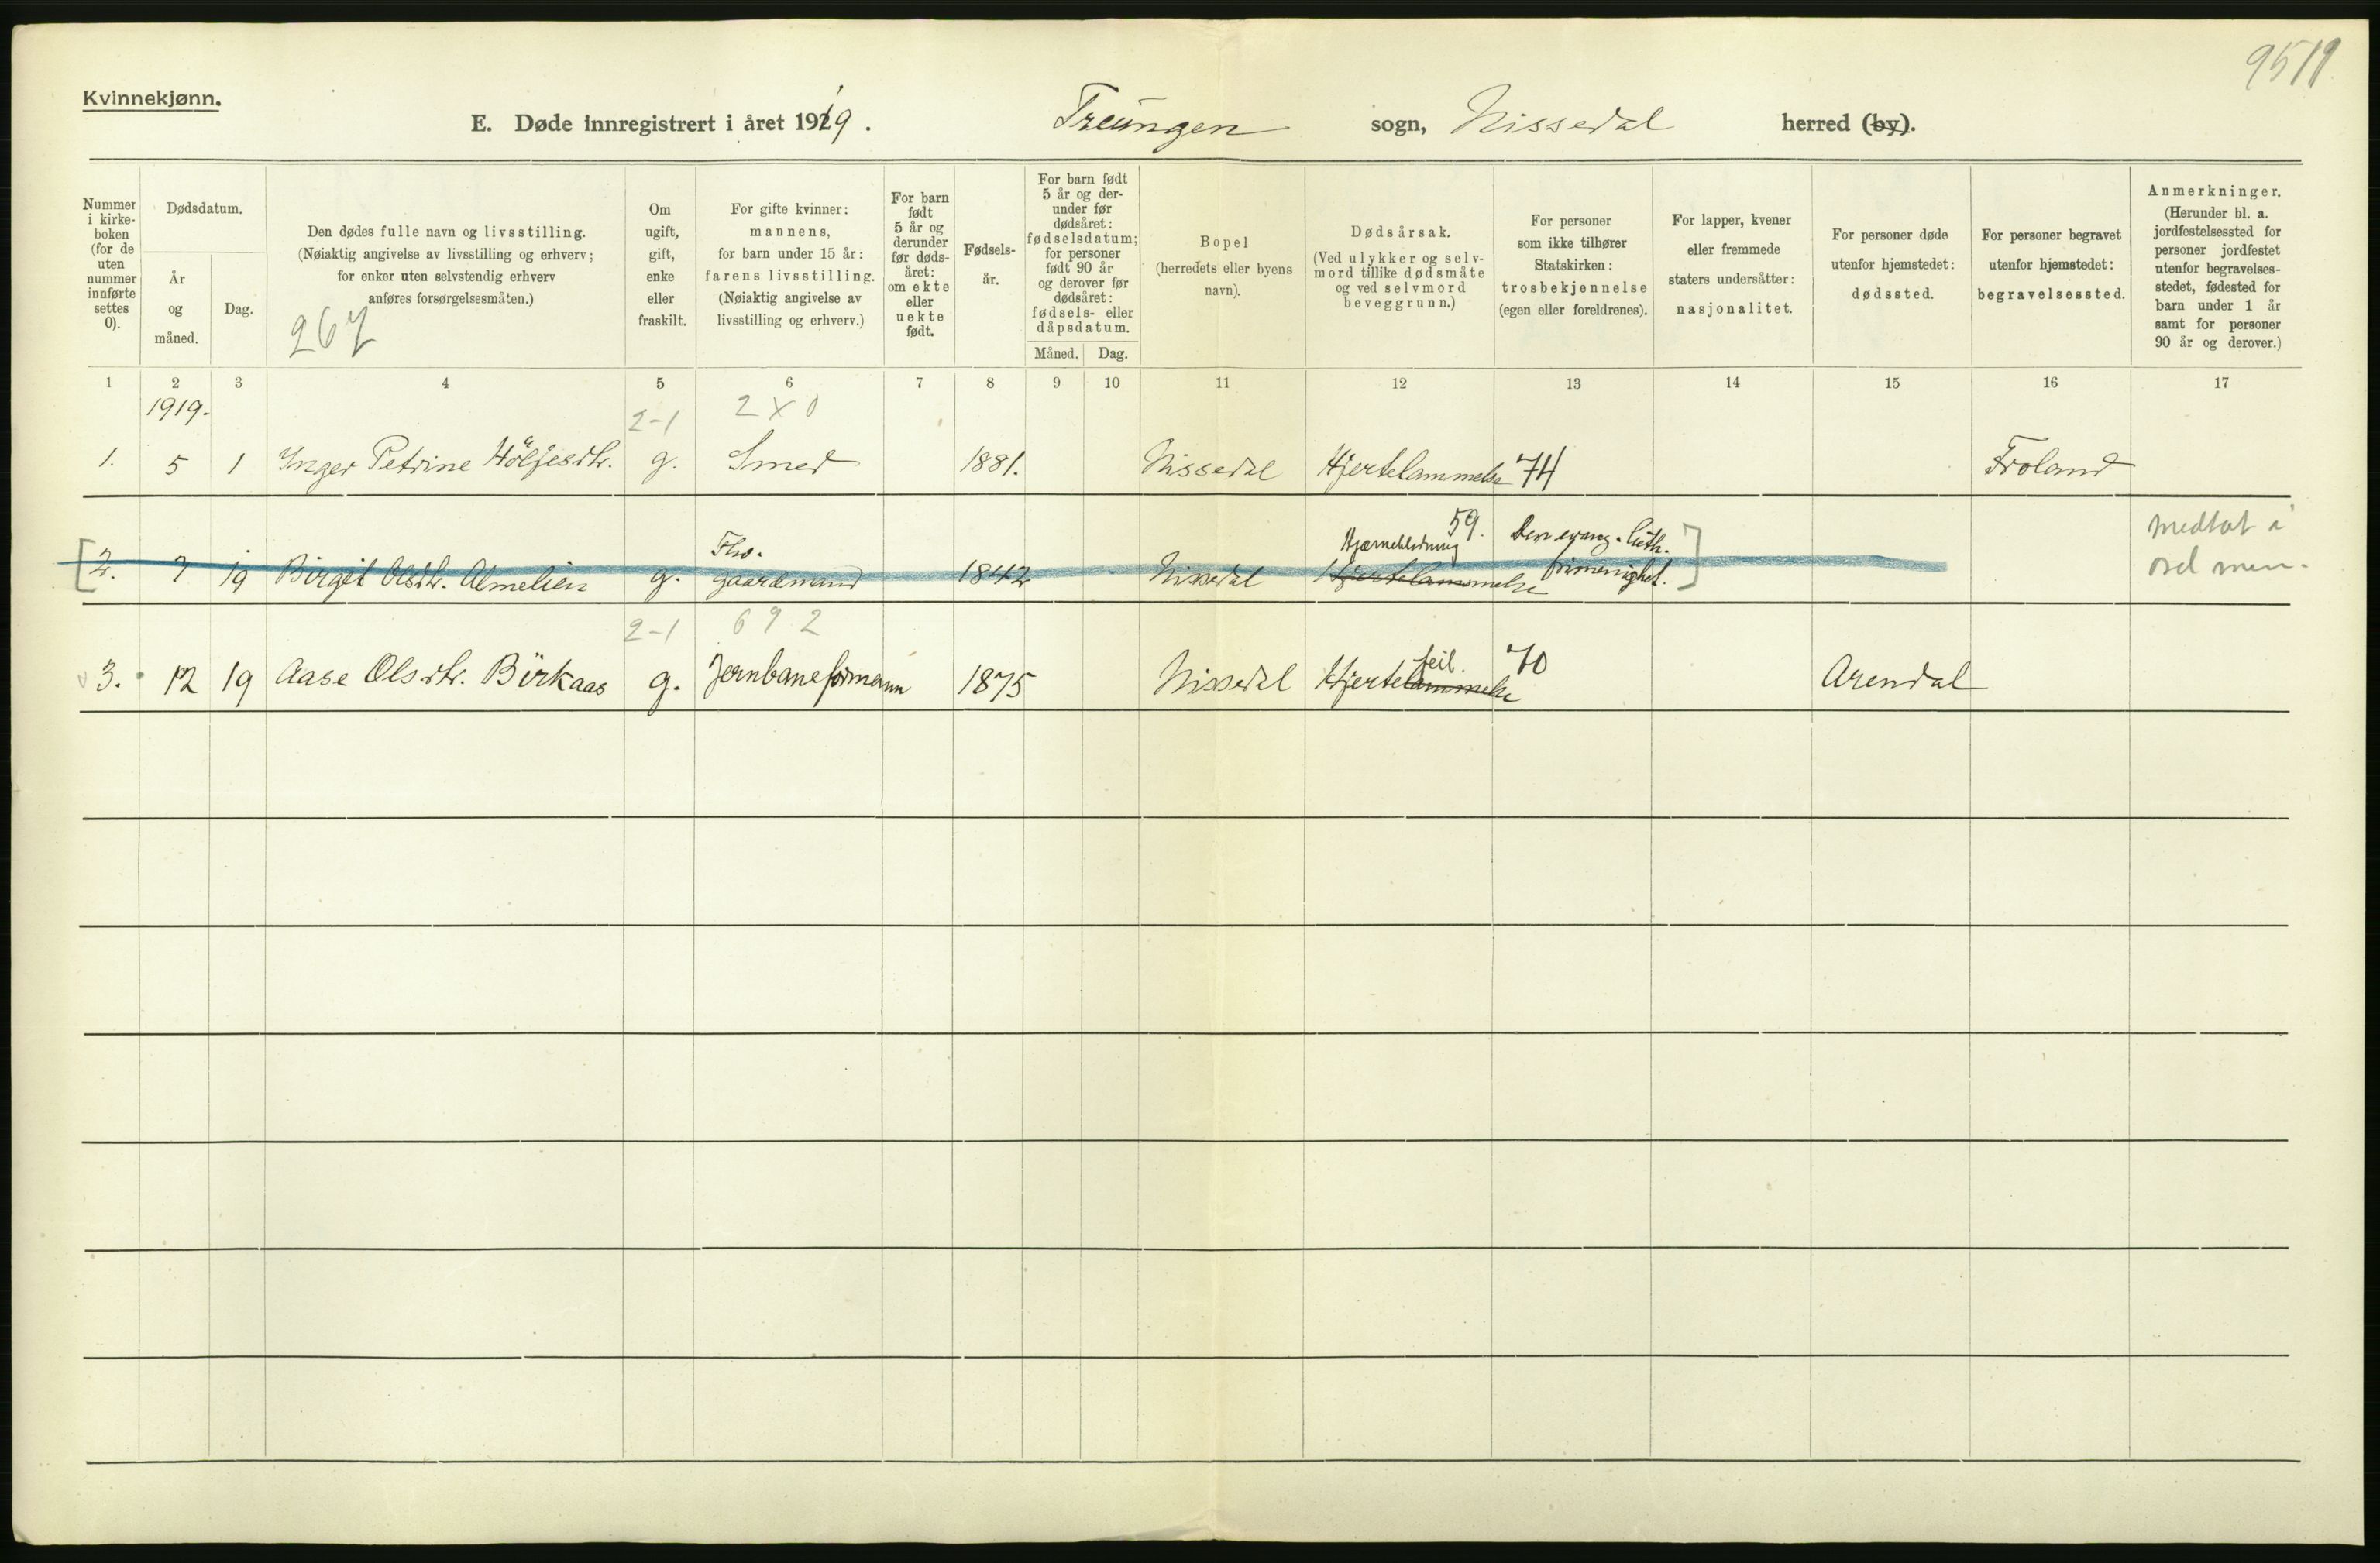 9511
Kvinnekjønn.
E. Døde innregistrert i året 1919. Treungen sogn, Nissedal herred (by).
Nummer i kirke- boken (for de uten nummer innførte settes 0).
Dødsdatum.
År og måned.
Dag.
Den dødes fulle navn og livsstilling.
(Nøiaktig angivelse av livsstilling og erhverv;
for enker uten selvstendig erhverv
anføres forsørgelsesmåten.)
267
Om ugift, gift, enke eller fraskilt.
For gifte kvinner:
mannens,
for barn under 15 år:
farens livsstilling.
(Nøiaktig angivelse av
livsstilling og erhverv.)
For barn født 5 år og derunder før døds- året: om ekte eller uekte født.
Fødsels- år.
For barn født 5 år og der- under før dødsåret: fødselsdatum; for personer født 90 år og derover før dødsåret: fødsels- eller dåpsdatum.
Måned. Dag.
Bopel
(herredets eller byens
navn).
Dødsårsak.
(Ved ulykker og selv-
mord tillike dødsmåte
og ved selvmord
beveggrunn.)
For personer
som ikke tilhører
Statskirken:
trosbekjennelse
(egen eller foreldrenes).
For lapper, kvener
eller fremmede
staters undersåtter:
nasjonalitet.
For personer døde
utenfor hjemstedet:
dødssted.
For personer begravet
utenfor hjemstedet:
begravelsessted.
Anmerkninger.
(Herunder bl. a.
jordfestelsessted for
personer jordfestet
utenfor begravelses-
stedet, fødested for
barn under 1 år
samt for personer
90 år og derover.)
1 2 3 4 5 6 7 8 9 10 11 12 13 14 15 16 17
1919. 2-1 2 X 0
1. 5 1 Inger Petrine Höljesdtr. g. Smed 1881. Nissedal Hjertelammelse 74 Froland
Fhv. Hjerneblødning 59. Den evang. luth. medtat i
[2. 7 19 Birgit Olsdtr. Almelien g. gaardmand 1842 Nissedal Hjertelammelse frimenighet.] osd men.
2-1 6 9 2
3. 12 19 Aase Olsdtr. Birkaas g. Jernbaneformann 1875 Nissedal Hjertelammelse feil. 70 Arendal